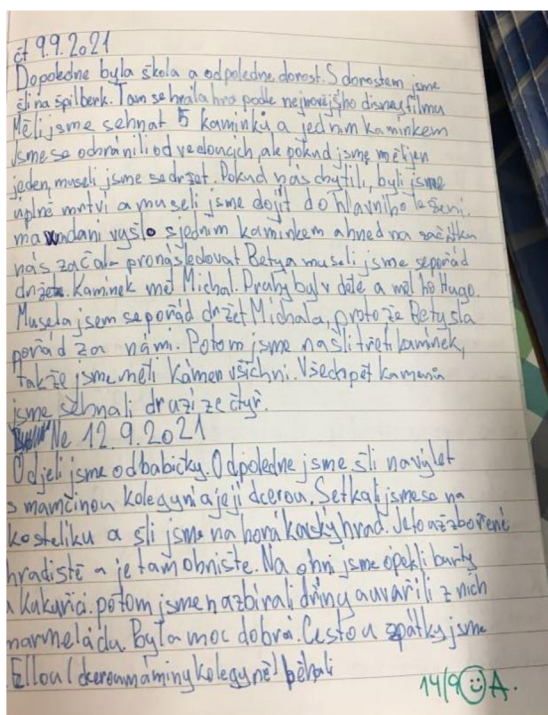 čt 9.9.2021
Dopoledne byla škola a odpoledne dorost. S dorostem jsme
šli na špilberk. Tam se hrála hra podle nejnovějšího disney filmu
Měli jsme sehnat 5 kamínků a jedním kamínkem
jsme se ochránili od vedoucích, ale pokud jsme měli jen
jeden, museli jsme se držet. Pokud nás chytili, byli jsme
úplně mrtví a museli jsme dojít do hlavního ležení.
na vyšlo s jedním kamínkem a hned na začátku
nás začal pronásledovat Bety a museli jsme se pořád
držet. Kamínek měl Michal. Druhý byl v dole a měl ho Hugo.
Musela jsem se pořád držet Michala, protože Bety šla
pořád za námi. Potom jsme našli třetí kamínek,
takže jsme měli kámen všichni. Všech pět kamenů
jsme sehnali druzí ze čtyř.
Ne 12.9.2021
Odjeli jsme od babičky. Odpoledne jsme šli na výlet
s mamčinou kolegyní a její dcerou. Setkali jsme se na
kostelíku a šli jsme na hrad. Je to až zbořené
hradiště a je tam ohniště. Na ohni jsme opekli buřty
a kukuřici. potom jsme nazbírali dříny a uvařili z nich
marmeládu. Byla moc dobrá. Cestou zpátky jsme
Ellou (dcerou máminy kolegyně) běhali
14/9 A.